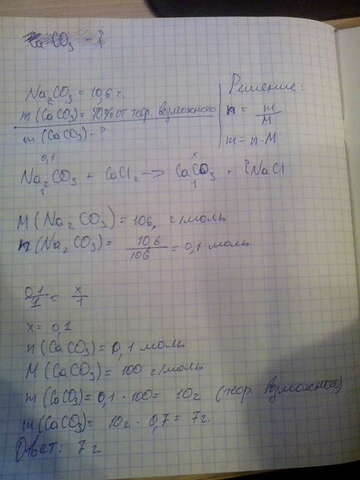 CaCO₃ - ?
Na₂CO₃ = 10,6 г.
m(CaCO₃) = 70% от теор. возможного
m(CaCO₃) - ?
Решение:
n = m/M
m = n·M
0,1 x
Na₂CO₃ + CaCl₂ → CaCO₃ + 2NaCl
1 1
M(Na₂CO₃) = 106, г/моль
n(Na₂CO₃) = 10,6/106 = 0,1 моль
0,1/1 = x/1
x = 0,1
n(CaCO₃) = 0,1 моль
M(CaCO₃) = 100 г/моль
m(CaCO₃) = 0,1 · 100 = 10г (теор. возможная)
m(CaCO₃) = 10г · 0,7 = 7г.
Ответ: 7 г.